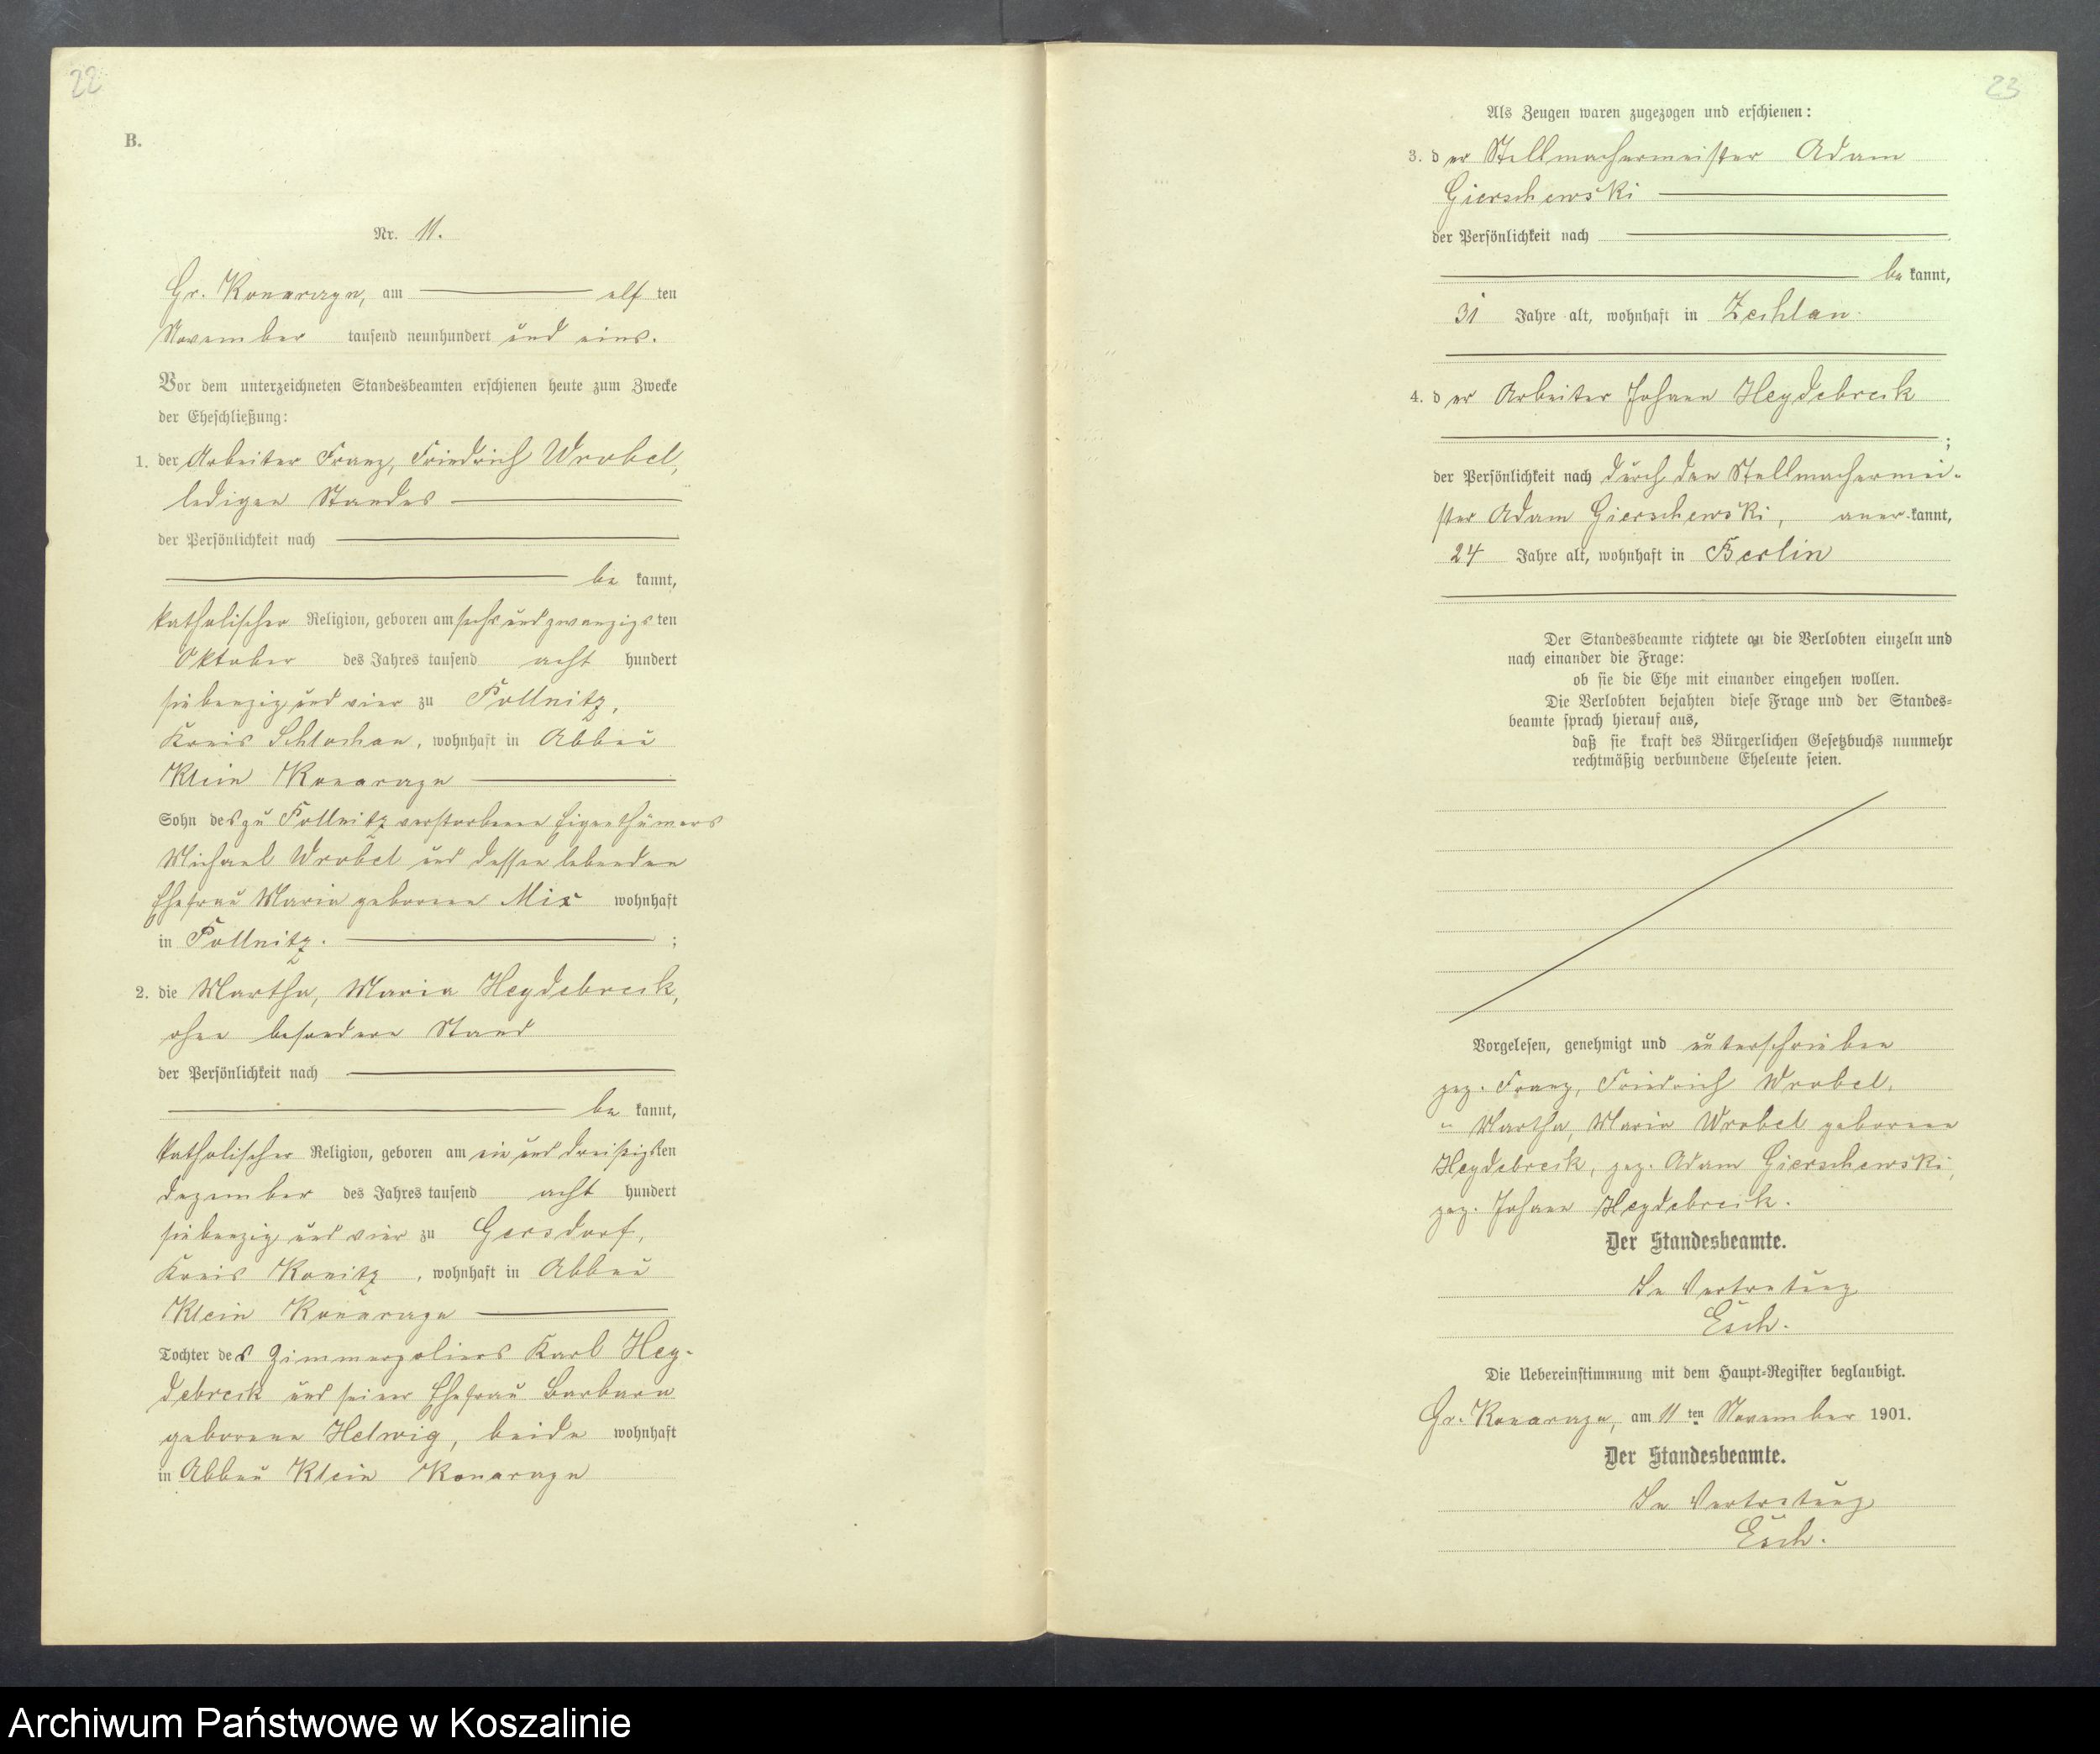 22
B.
Nr. 11.
Gr. Konarzyn, am elf ten
November tausend neunhundert und eins.
Vor dem unterzeichneten Standesbeamten erschienen heute zum Zwecke
der Eheschließung:
1. der Arbeiter Franz, Friedrich Wrobel,
ledigen Standes
der Persönlichkeit nach
be kannt,
katholischer Religion, geboren am sechs und zwanzigs ten
Oktober des Jahres tausend acht hundert
siebenzig und vier zu Pollnitz,
Kreis Schlochau, wohnhaft in Abbau
Klein Konarzyn
Sohn des zu Pollnitz verstorbenen Eigenthümers
Michael Wrobel und dessen lebenden
Ehefrau Maria geborene Mix wohnhaft
in Pollnitz. ;
2. die Martha, Maria Heydebreck,
ohne besondern Stand
der Persönlichkeit nach
be kannt,
katholischer Religion, geboren am ein und dreißigsten
Dezember des Jahres tausend acht hundert
siebenzig und vier zu Gersdorf,
Kreis Konitz, wohnhaft in Abbau
Klein Konarzyn
Tochter des Zimmerpoliers Karl Hey-
debreck und seiner Ehefrau Barbara
geborene Helwig, beide wohnhaft
in Abbau Klein Konarzyn
23
Als Zeugen waren zugezogen und erschienen:
3. der Stellmachermeister Adam
Gierschewski
der Persönlichkeit nach
be kannt,
31 Jahre alt, wohnhaft in Zechlau
4. der Arbeiter Johann Heydebreck
;
der Persönlichkeit nach durch den Stellmachermei-
ster Adam Gierschewski, aner kannt,
24 Jahre alt, wohnhaft in Berlin
Der Standesbeamte richtete an die Verlobten einzeln und
nach einander die Frage:
ob sie die Ehe mit einander eingehen wollen.
Die Verlobten bejahten diese Frage und der Standes-
beamte sprach hierauf aus,
daß sie kraft des Bürgerlichen Gesetzbuchs nunmehr
rechtmäßig verbundene Eheleute seien.
Vorgelesen, genehmigt und unterschrieben
gez. Franz, Friedrich Wrobel.
" Martha, Maria Wrobel geborene
Heydebreck, gez. Adam Gierschewski,
gez. Johann Heydebreck.
Der Standesbeamte.
In Vertretung
Esch.
Die Uebereinstimmung mit dem Haupt-Register beglaubigt.
Gr. Konarzyn, am 11 ten November 1901.
Der Standesbeamte.
In Vertretung
Esch.
Archiwum Państwowe w Koszalinie